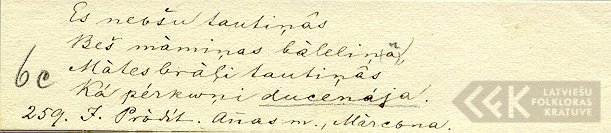 Es neošu tautiņâs
Beš mâmiņas bâleliņâ,
Mâtesbrâļi tautiņâs
Kâ pérkuņi ducenája.
6c
259. J. Prôdit. Añas m., Mârcena.
LATVIEŠU
FOLKLORAS
KRĀTUVE